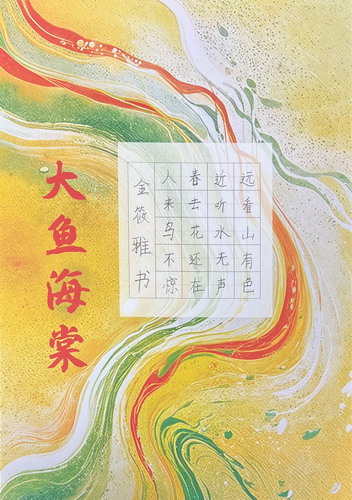 远看山有色
近听水无声
春去花还在
人来鸟不惊
金筱雅书
大鱼海棠